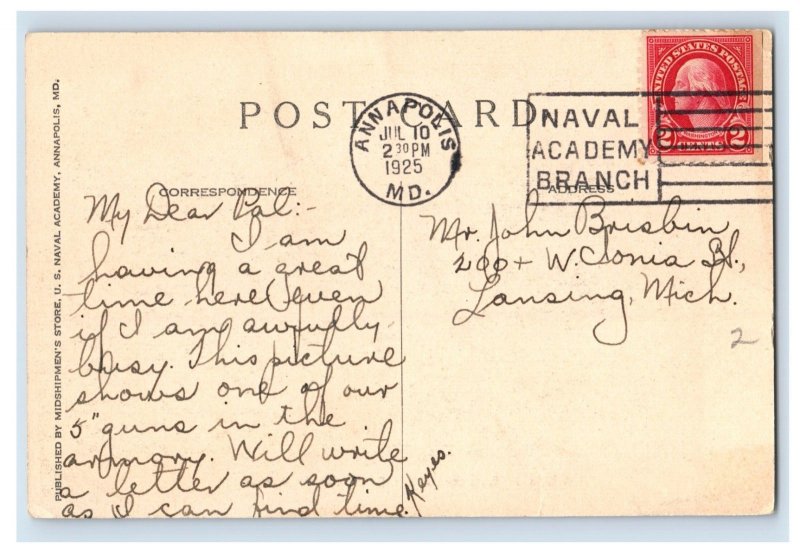 POST CARD
ANNAPOLIS
JUL 10
2 30 PM
1925
MD.
NAVAL
ACADEMY
BRANCH
UNITED STATES POSTAGE
WASHINGTON
2 CENTS 2
CORRESPONDENCE
ADDRESS
PUBLISHED BY MIDSHIPMEN'S STORE, U. S. NAVAL ACADEMY, ANNAPOLIS, MD.
My Dear Pal:-
I am
having a great
time here (even
if I am awfully
busy. This picture
shows one of our
5" guns in the
armory. Will write
a letter as soon
as I can find time.
Keyes.
Mr. John Brisbin
W. Ionia St.,
Lansing, Mich.
2